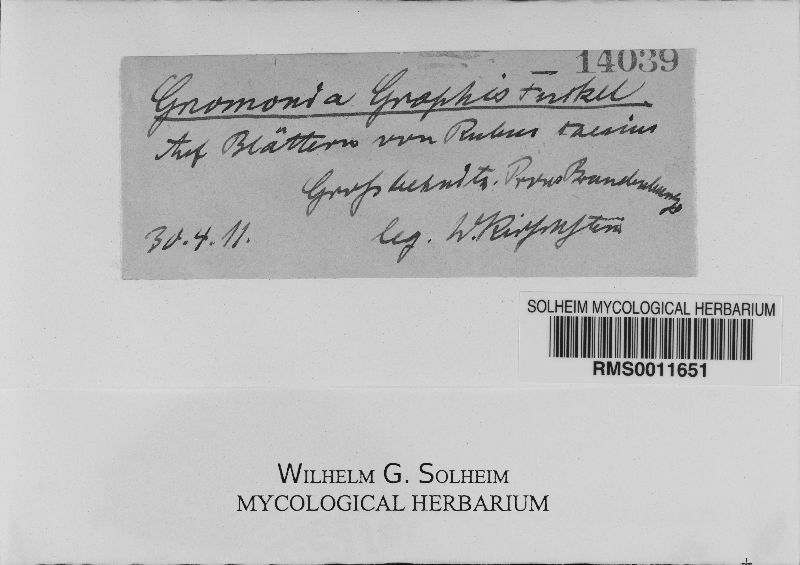 14039
Gnomonia Graphis Fuckel
Auf Blättern von Rubus caesius
Großbehnitz. Prov. Brandenburg
30.4.11. leg. W. Kirschstein
SOLHEIM MYCOLOGICAL HERBARIUM
RMS0011651
WILHELM G. SOLHEIM
MYCOLOGICAL HERBARIUM